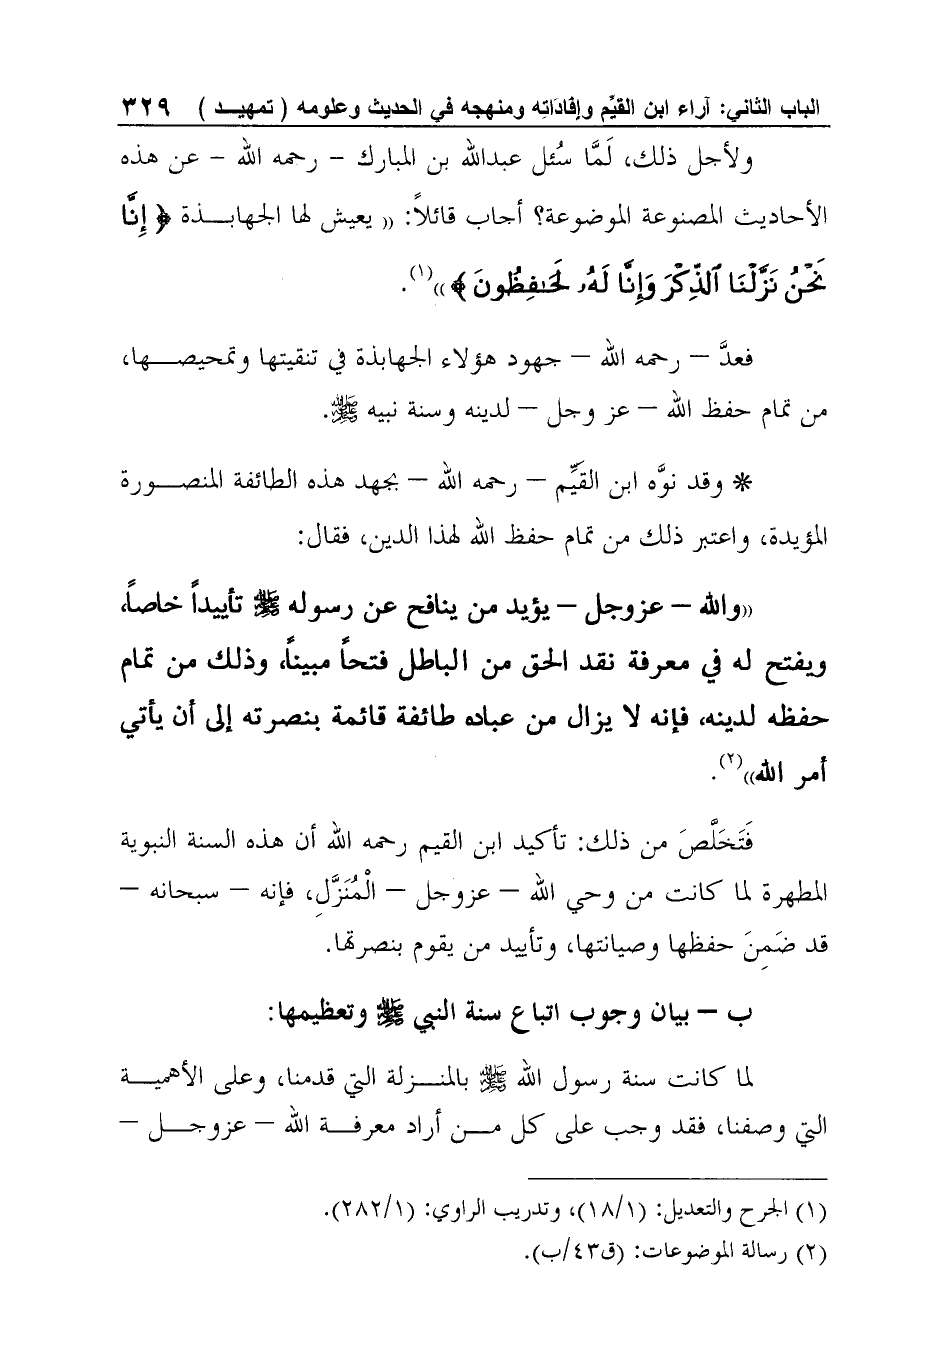 الباب الثاني: آراء ابن القيِّم وإفاداته ومنهجه في الحديث وعلومه ( تمهيــد ) ٣٢٩
ولأجل ذلك، لَمَّا سُئل عبدالله بن المبارك – رحمه الله – عن هذه
الأحاديث المصنوعة الموضوعة؟ أجاب قائلاً: (( يعيش لها الجهابــذة ﴿ إِنَّا
نَحْنُ نَزَّلْنَا ٱلذِّكْرَ وَإِنَّا لَهُۥ لَحَـٰفِظُونَ ﴾))(١).
فعدَّ – رحمه الله – جهود هؤلاء الجهابذة في تنقيتها وتمحيصــها،
من تمام حفظ الله – عز وجل – لدينه وسنة نبيه ﷺ.
* وقد نوَّه ابن القيِّم – رحمه الله – بجهد هذه الطائفة المنصــورة
المؤيدة، واعتبر ذلك من تمام حفظ الله لهذا الدين، فقال:
((والله – عزوجل – يؤيد من ينافح عن رسوله ﷺ تأييداً خاصاً،
ويفتح له في معرفة نقد الحق من الباطل فتحاً مبيناً، وذلك من تمام
حفظه لدينه، فإنه لا يزال من عباده طائفة قائمة بنصرته إلى أن يأتي
أمر الله))(٢).
فَتَخَلَّصَ من ذلك: تأكيد ابن القيم رحمه الله أن هذه السنة النبوية
المطهرة لما كانت من وحي الله – عزوجل – الْمُنَزَّلِ، فإنه – سبحانه –
قد ضَمِنَ حفظها وصيانتها، وتأييد من يقوم بنصرتها.
ب – بيان وجوب اتباع سنة النبي ﷺ وتعظيمها:
لما كانت سنة رسول الله ﷺ بالمنــزلة التي قدمنا، وعلى الأهميــة
التي وصفنا، فقد وجب على كل مــن أراد معرفــة الله – عزوجــل –
(١) الجرح والتعديل: (١٨/١)، وتدريب الراوي: (٢٨٢/١).
(٢) رسالة الموضوعات: (ق٤٣/ب).